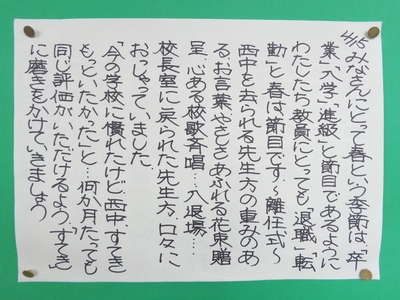 4/15 みなさんにとって春という季節は、「卒
業」「入学」「進級」と節目であるように
わたしたち教員にとっても「退職」「転
動」と春は節目です。〜離任式〜
西中を去られる先生方の重みのあ
るお言葉、やさしさあふれる花束贈
呈、心ある校歌斉唱…入退場…
校長室に戻られた先生方、口々に
おっしゃっていました。
「今の学校に慣れたけど西中、すてき
もっといたかった」と…何か月たっても
同じ評価がいただけるよう、「すてき」
に磨きをかけていきましょう